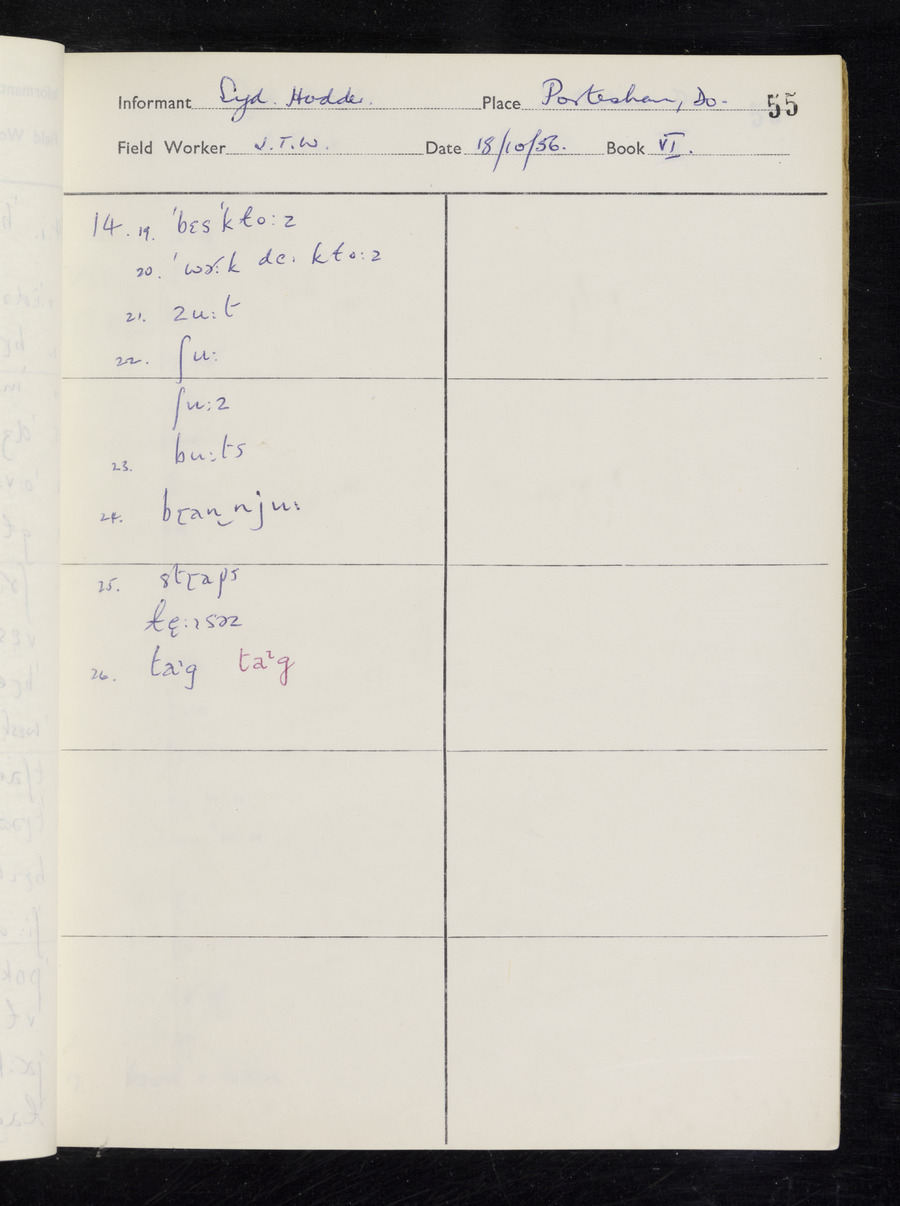 Informant Syd. Hodder. Place Portesham, Do. 55
Field Worker J.T.W. Date 18/10/56. Book VI.
14. 19. ˈbɛsˈkɫo:z
20. ˈwɚ:k de: kɫo:z
21. zu:t
22. ʃu:
ʃu:z
23. bu:ts
24. bɽan‿nju:
25. stɽaps
26. taˑg taˑg